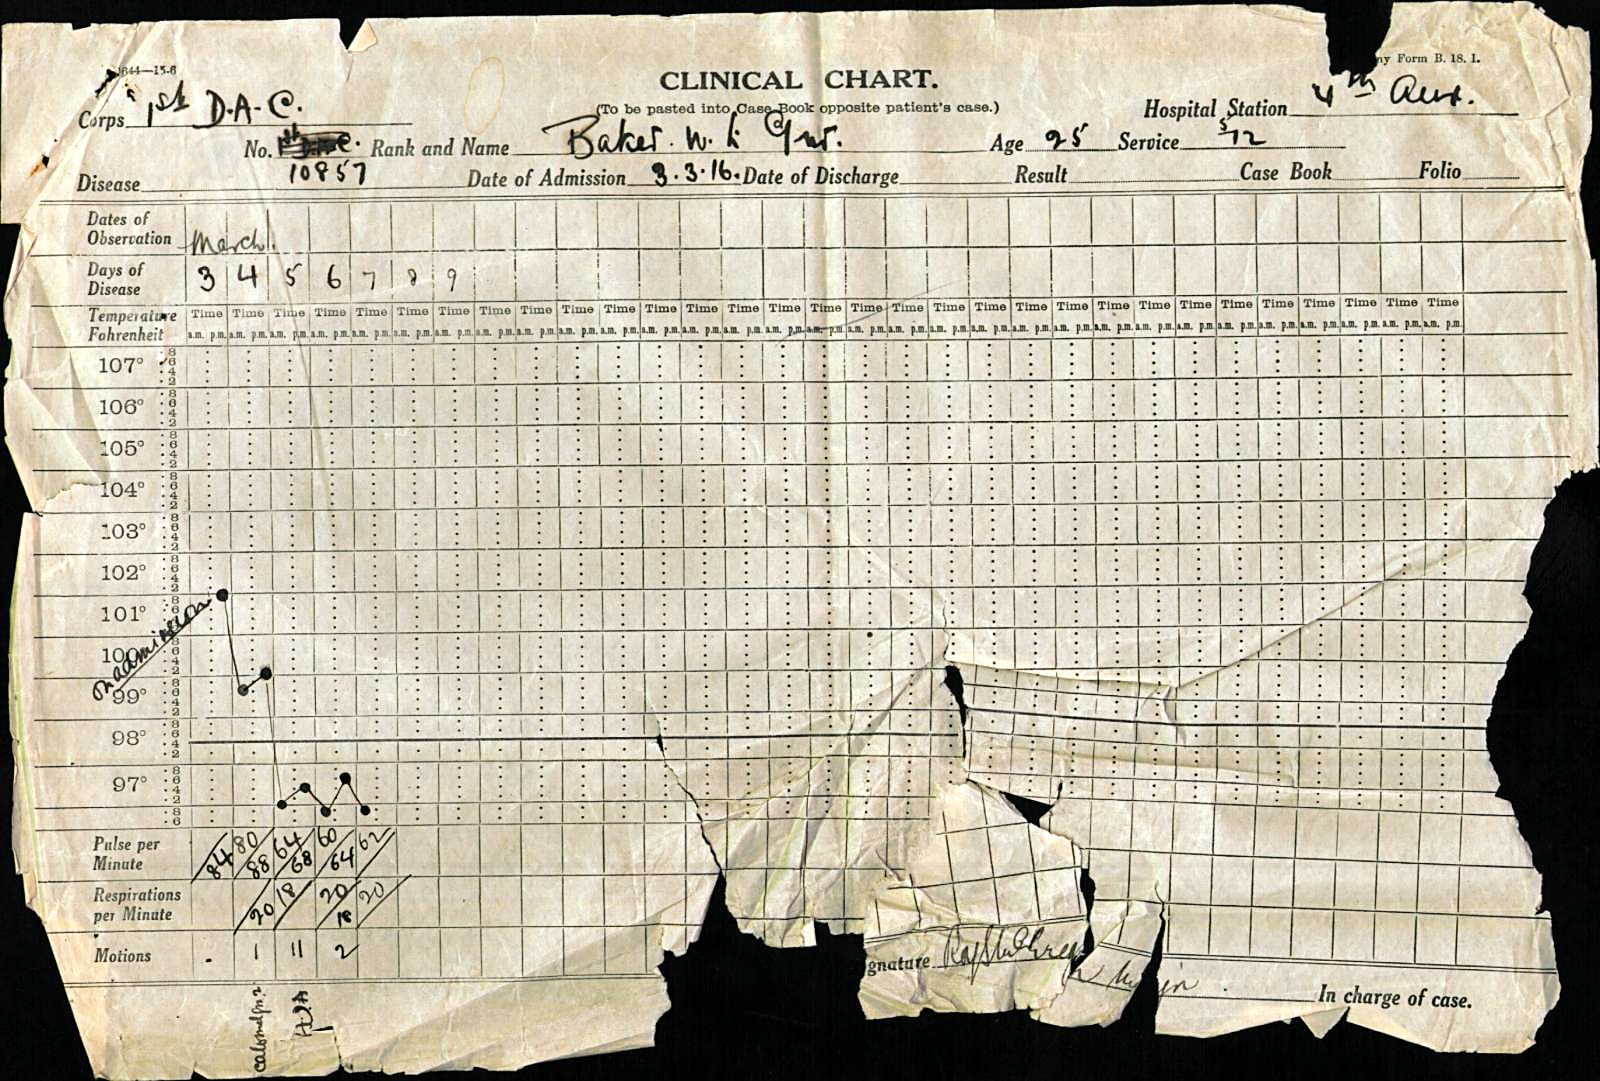 1644—15-6
ny Form B. 18. 1.
CLINICAL CHART.
(To be pasted into Case Book opposite patient's case.)
Corps 1st D.A.C.
Hospital Station 4th Aux.
No. Rank and Name Baker. W. L. Gnr. Age 25 Service 5/12
10857
Disease Date of Admission 3.3.16. Date of Discharge Result Case Book Folio
Dates of
Observation March.
Days of
Disease 3 4 5 6 7 8 9
Temperature Time Time Time Time Time Time Time Time Time Time Time Time Time Time Time Time Time Time Time Time Time Time Time Time Time Time Time Time Time Time Time
Fahrenheit a.m. p.m. a.m. p.m. a.m. p.m. a.m. p.m. a.m. p.m. a.m. p.m. a.m. p.m. a.m. p.m. a.m. p.m. a.m. p.m. a.m. p.m. a.m. p.m. a.m. p.m. a.m. p.m. a.m. p.m. a.m. p.m. a.m. p.m. a.m. p.m. a.m. p.m. a.m. p.m. a.m. p.m. a.m. p.m. a.m. p.m. a.m. p.m. a.m. p.m. a.m. p.m. a.m. p.m. a.m. p.m. a.m. p.m. a.m. p.m. a.m. p.m.
107° 8 6 4 2
106° 8 6 4 2
105° 8 6 4 2
104° 8 6 4 2
103° 8 6 4 2
102° 8 6 4 2
101° 8 6 4 2
On admission
100 8 6 4 2
99° 8 6 4 2
98° 8 6 4 2
97° 8 6 4 2
8 6
Pulse per
Minute 84 80 88 64 68 60 64 62
Respirations
per Minute 20 18 20 18 20
Motions . 1 11 2
gnature
In charge of case.